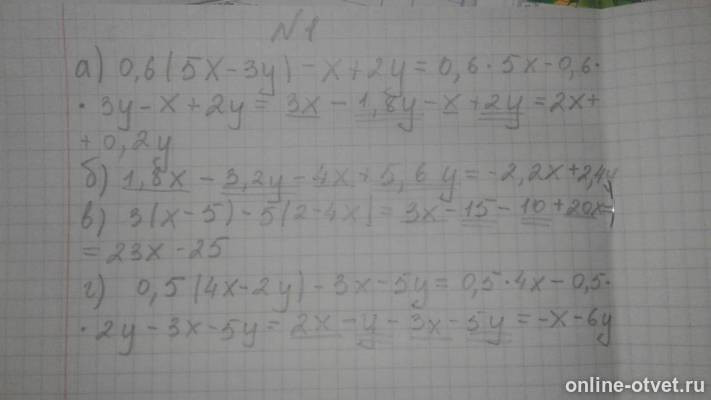 N1
а) 0,6(5x-3y)-x+2y=0,6·5x-0,6·
·3y-x+2y= 3x-1,8y-x+2y=2x+
+0,2y
б) 1,8x-3,2y-4x+5,6y=-2,2x+2,4y
в) 3(x-5)-5(2-4x)=3x-15-10+20x=
=23x-25
г) 0,5(4x-2y)-3x-5y=0,5·4x-0,5·
·2y-3x-5y=2x-y-3x-5y=-x-6y
online-otvet.ru